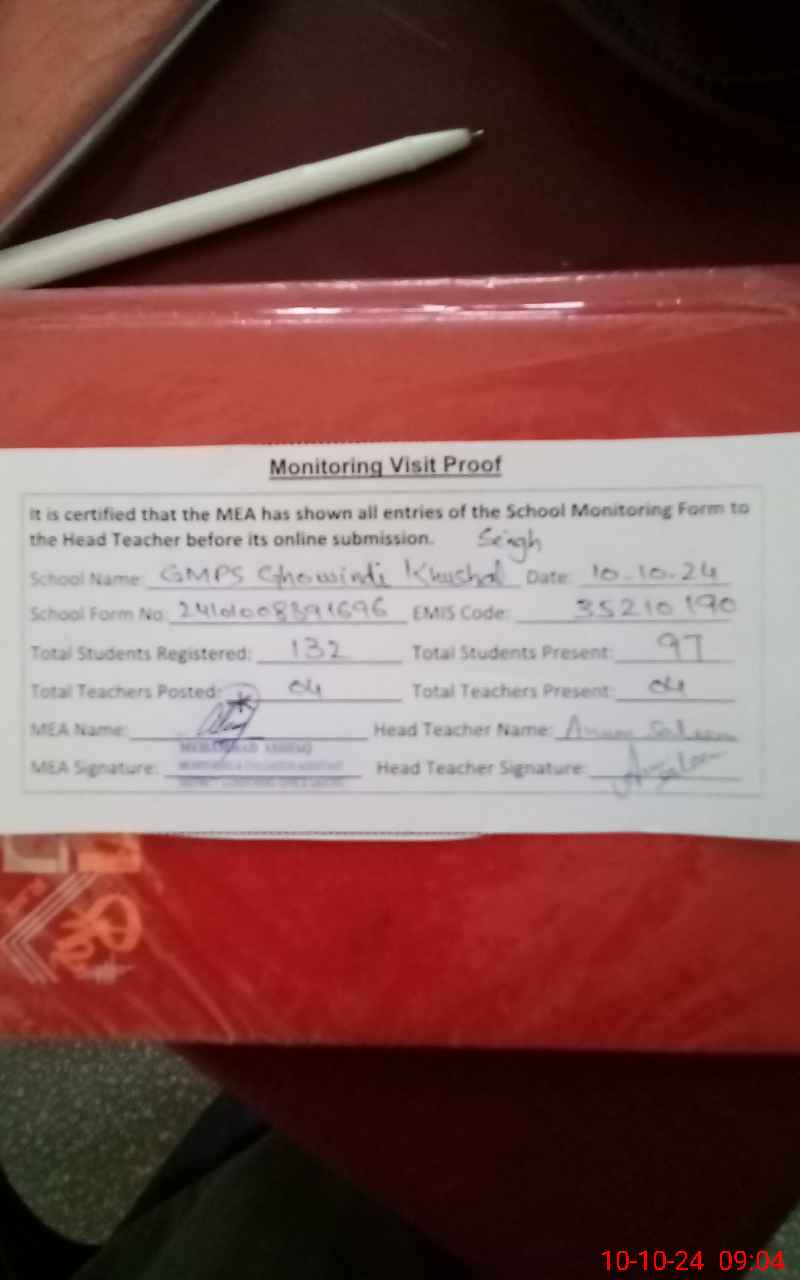 Monitoring Visit Proof
It is certified that the MEA has shown all entries of the School Monitoring Form to
the Head Teacher before its online submission. Singh
School Name: GMPS Ghowindi Khushal Date: 10-10-24
School Form No: EMIS Code: 35210190
Total Students Registered: 132 Total Students Present: 97
Total Teachers Posted: 04 Total Teachers Present: 04
MEA Name: Head Teacher Name: Anum Saleem
MUHAMMAD ASHFAQ
MEA Signature: MONITORING & EVALUATION ASSISTANT Head Teacher Signature: A. Saleem
10-10-24 09:04